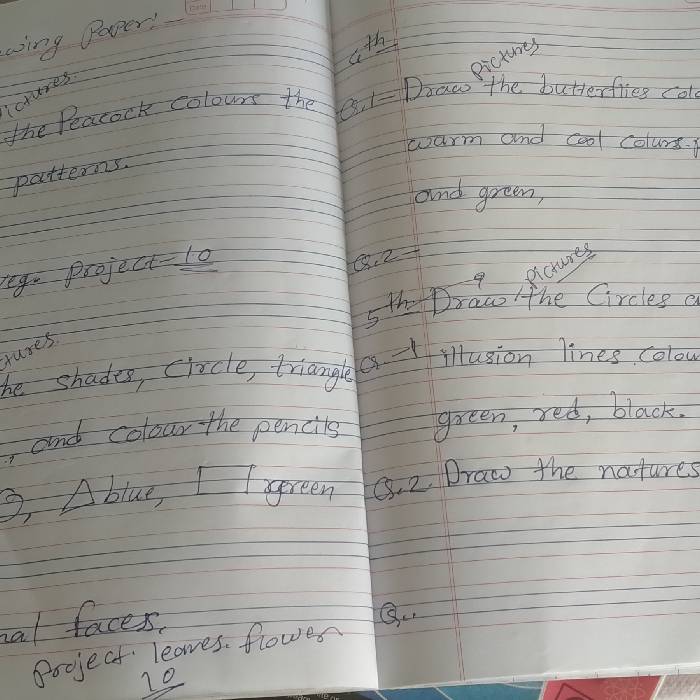 wing Paper:
Pictures.
the Peacock colours the
patterns.
Project = 10
ctures.
he shades, circle, triangle
, and colour the pencils
blue, green
nal faces.
Project. leaves. flower
10
4th
pictures
Q.1 = Draw the butterflies colo
warm and cool colurs.
and green,
Q.2 =
pictures
5th Draw the Circles a
Q-1 illusion lines. Colou
green, red, black.
Q.2. Draw the natures
Q..